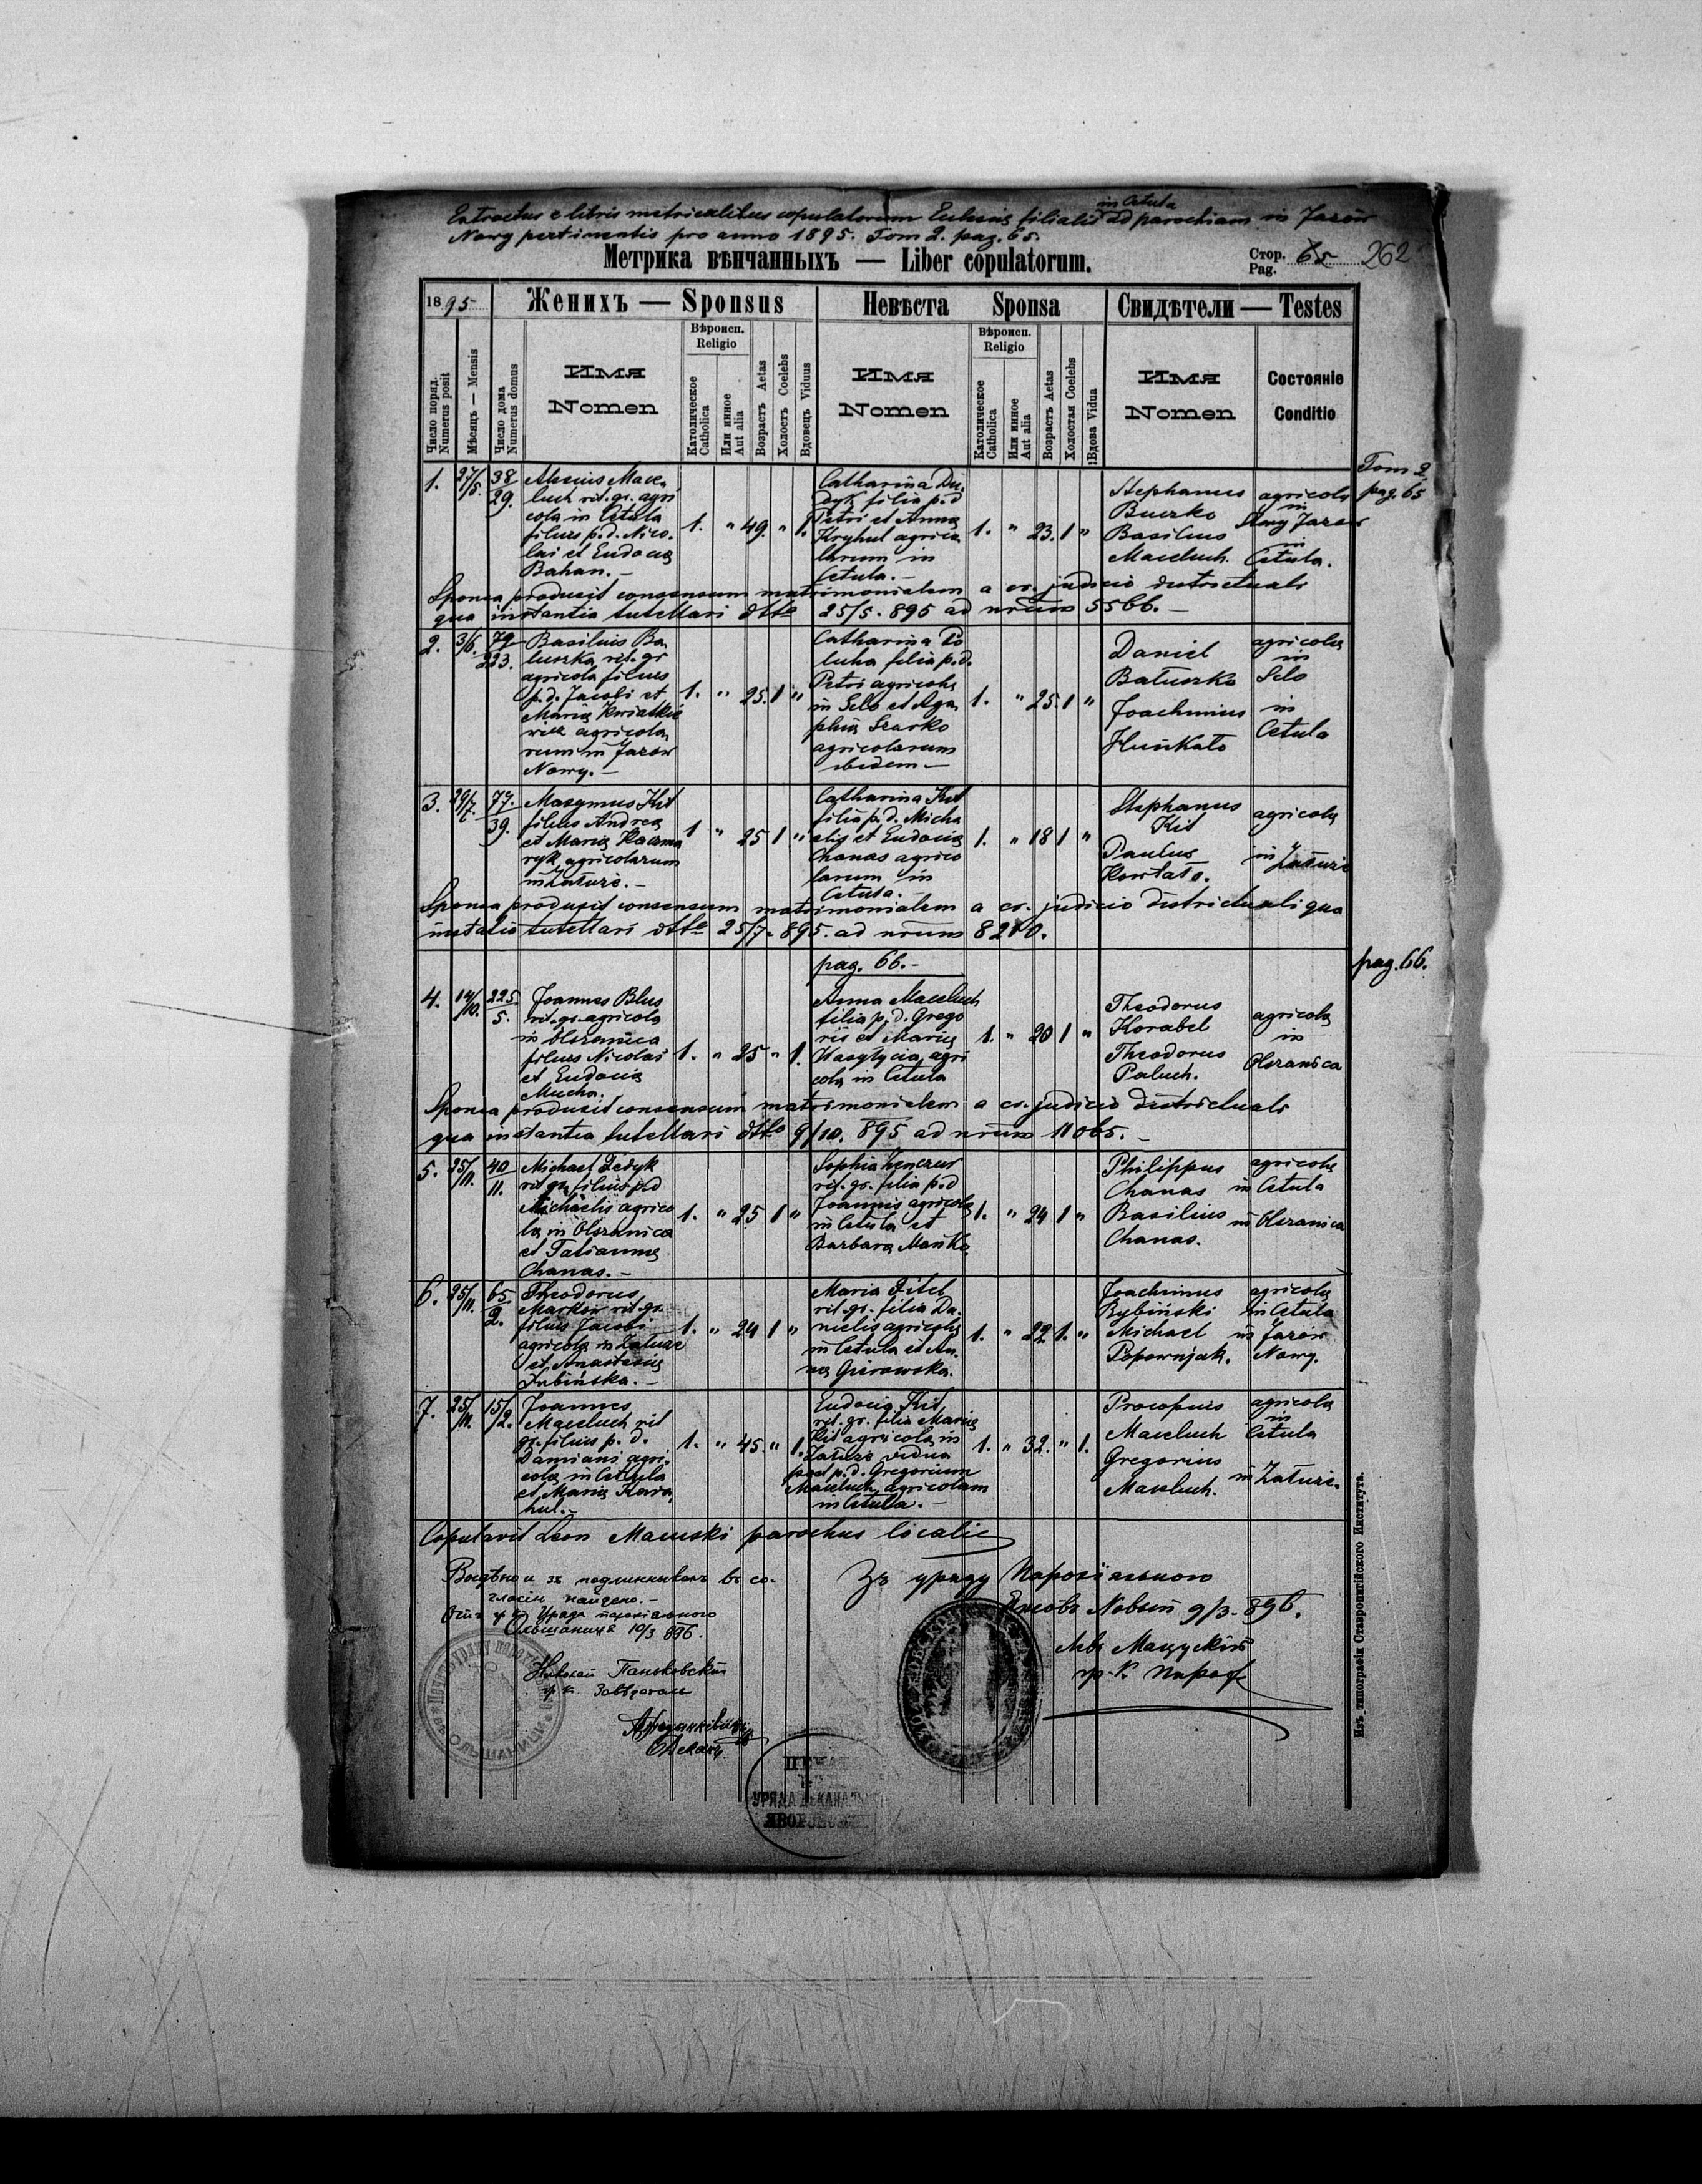 in Cetula
Extractus e libris metricalibus copulatorum Ecclesiæ filialis ad parochiam in Jazów
Nowy pertinentis pro anno 1895. Tom 2. pag. 65.
Метрика вѣнчанныхъ — Liber copulatorum.
Стор. Pag. 65 262
1895
Женихъ — Sponsus
Невѣста Sponsa
Свидѣтели — Testes
Число поряд. Numerus posit
Мѣсяцъ — Mensis
Число дома Numerus domus
Имя Nomen
Вѣроисп. Religio
Католическое Catholica
Или инное Aut alia
Возрастъ Aetas
Холостъ Coelebs
Вдовецъ Viduus
Имя Nomen
Вѣроисп. Religio
Католическое Catholica
Или инное Aut alia
Возрастъ Aetas
Холостая Coelebs
Вдова Vidua
Имя Nomen
Состояніе Conditio
Tom 2
pag. 65
1. 27/5. 38/29.
Alexius Mace
luch rit. gr. agri
cola in Cetula
filius p.d. Nico.
lai et Eudociæ
Bahan. –
1. " 49. " 1.
Catharina Du
dyk filia p.d
Petri et Annæ
Kryhul agrico
larum in
Cetula. –
1. " 23. 1 "
Stephanus
Buczko
Basilius
Maceluch.
agricolæ
in
Stary Jazów
in
Cetula.
Sponsa produxit consensum matrimonialem a cr. judicio districtuali
qua instantia tutellari dtto 25/5. 895 ad nrum 5566. –
2. 3/6. 79/223.
Basilius Ba
luszka rit. gr
agricola filius
p.d. Jacobi et
Mariæ Kwiatkie
wicz agricola
rum in Jazów
Nowy. –
1. " 25. 1 "
Catharina
luha filia p.d.
Petri agricolæ
in Selo et Aga
phiæ Szarko
agricolarum
ibidem –
1. " 25. 1 "
Daniel
Batuszko
Joachimus
Huńkało
agricolæ
in
Selo
in
Cetula
3. 29/7. 77./39.
Maxymus Kit
filius Andreæ
et Mariæ
ryk agricolarum
in Załuże. –
1 " 25 1 "
Catharina Kit
filia p.d. Micha
elis et Eudociæ
Chanas agrico
larum in
Cetula. –
1. " 18 1 "
Stephanus
Kit
Paulus
Kowtało.
agricolæ
in Załuże
Sponsa produxit consensum matrimonialem a cr. judicio districtuali qua
instantia tutellari dtto 25/7. 895. ad nrum 8270.
pag. 66. –
pag. 66.
4. 14/10. 225/5.
Joannes Blus
rit. gr. agricola
in Olszanica
filius Nicolai
et Eudociæ
Mucha.
1. " 25 " 1.
Anna Maceluch
filia p.d. Grego
rii et Mariæ
Wasylycia agri
colæ in Cetula
1. " 20 1 "
Theodorus
Korabel
Theodorus
Paluch.
agricolæ
in
Olszanica
Sponsa produxit consensum matrimonialem a cr. judicio districtuali
qua instantia tutellari dtto 9/10. 895 ad nrum 11065. –
5. 25/11. 40/11.
Michael Dedyk
rit. gr. filius p.d
Michaelis agrico
læ in Olszanica
et Tatiannæ
Chanas. –
1. " 25 1 "
Sophia
rit. gr. filia p.d
Joannis agricolæ
in Cetula et
Barbaræ Mańko.
1. " 24 1 "
Philippus
Chanas
Basilius
Chanas.
agricolæ
in Cetula
in Olszanica
6. 25/11. 65/2.
Theodorus
Marków rit. gr.
filius Jacobi
agricolæ in Załuże
et Anastasiæ
Dubińska. –
1. " 24 1 "
Maria Fitel
rit. gr. filia Da.
nielis agricolæ
in Cetula et An.
næ Gierowska.
1. " 22 1. "
Joachimus
Rybiński
Michael
Popownjak.
agricolæ
in Cetula
in Jazów
Nowy.
7. 25/11. 15/2.
Joannes
Maceluch rit
gr. filius p. d.
Damiani agri.
colæ in Cetula
et Mariæ Kara
hul. –
1. " 45. " 1.
Eudocia Kit,
rit. gr. filia Mariæ
Kit agricolæ in
Załuże vidua
post p.d. Gregorium
Maceluch agricolam
in Cetula. –
1. " 32. " 1.
Procopius
Maceluch
Gregorius
Maceluch.
agricolæ
in
Cetula
in Załuże.
Copulavit Leon Macuski parochus localis
зъ подлинникомъ въ со-
гласіи найдено. –
Отъ гр. к. Уряда парохіального
Ольшаниця 10/3 896.
Николай Паньковскій
гр. к. Завѣдатель
Деканъ.
Зъ уряду Парохіального
Язовъ Новый 9/3. 896.
Левъ Мацускій
гр. к. парох
ОЛЬШАНИЦИ
ПЕЧАТЬ
УРЯДА ДЕКАНАЛЬН
ЯВОРОВСКОГО
Изъ типографіи Ставропигійского Института.